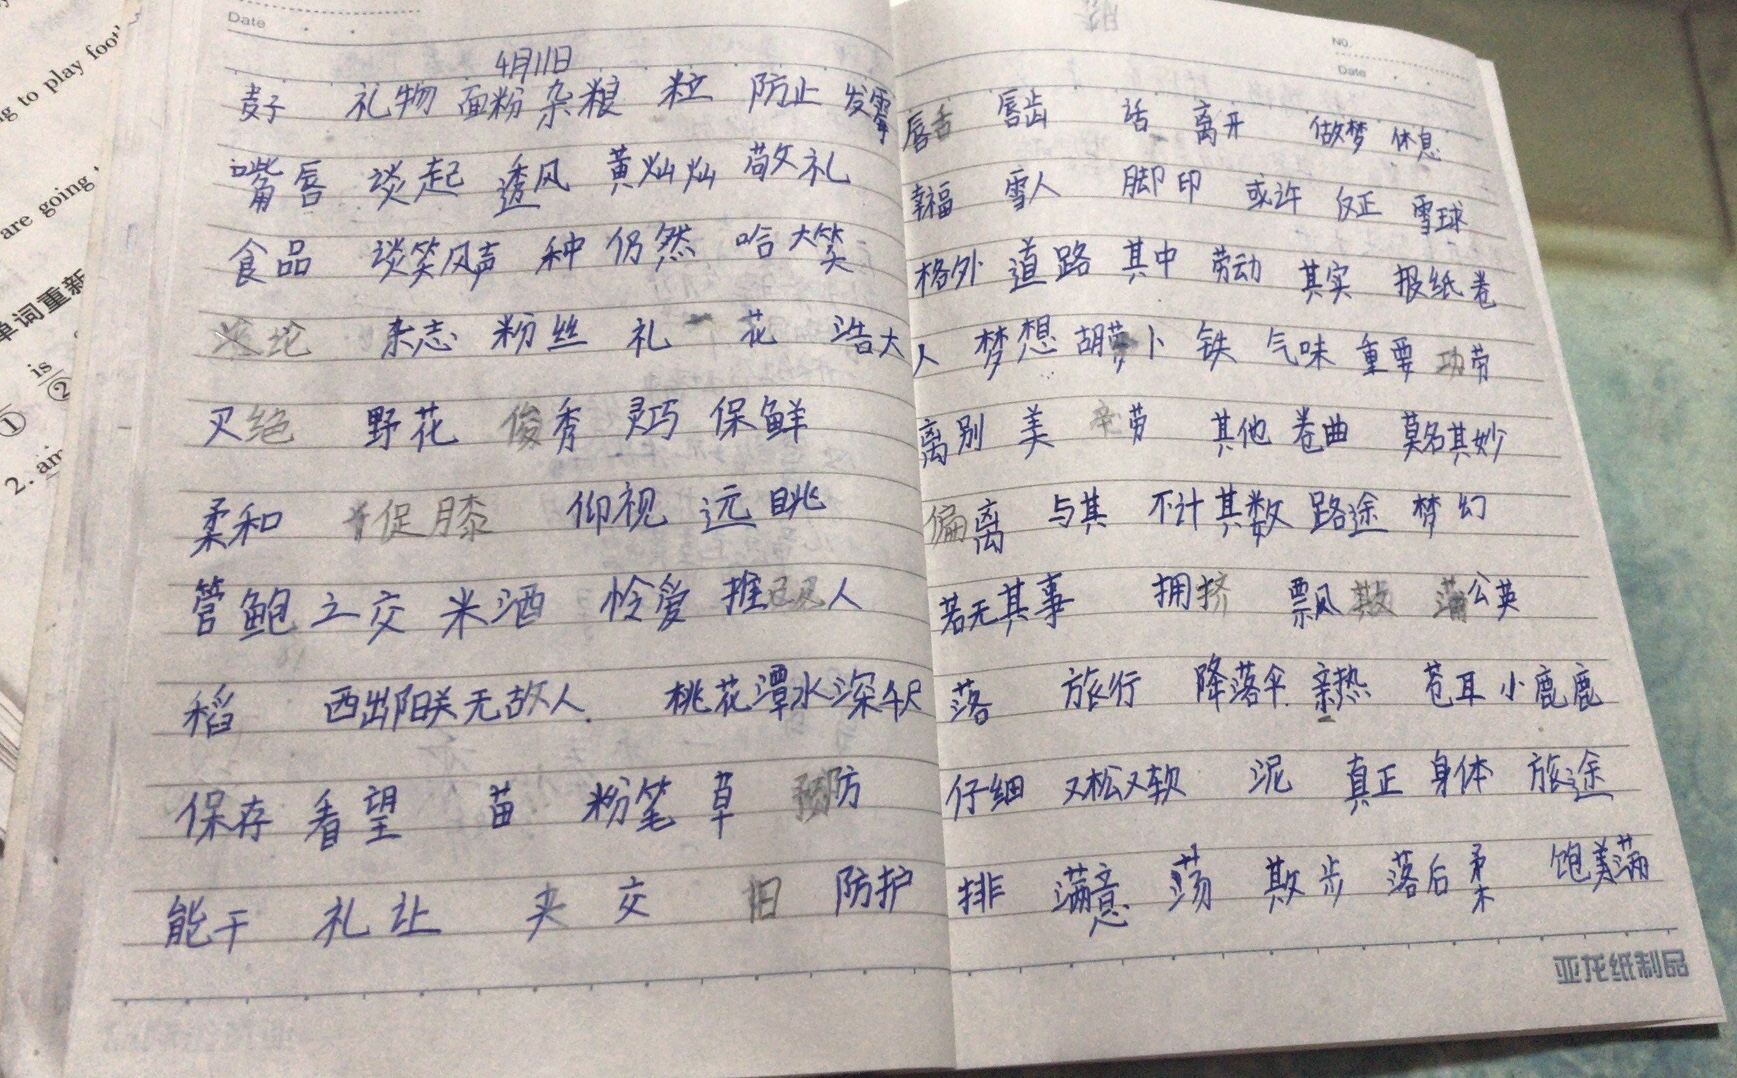 ng to play foot
are going
单词重新
is
①
②
2. am
Date
4月11日
麦子 礼物 面粉 杂粮 粒 防止 发霉
嘴唇 谈起 透风 黄灿灿 敬礼
食品 谈笑风声 种 仍然 哈大笑
杂志 粉丝 礼 花 浩大
灭绝 野花 俊秀 灵巧 保鲜
柔和 促膝 仰视 远眺
管鲍之交 米酒 怜爱 推己及人
稻 西出阳关无故人 桃花潭水深千尺
保存 看望 苗 粉笔 草 预防
能干 礼让 夹 交 旧 防护
NO.
Date
唇舌 唇齿 话 离开 做梦 休息
幸福 雪人 脚印 或许 反正 雪球
格外 道路 其中 劳动 其实 报纸卷
人 梦想 胡萝卜 铁 气味 重要 功劳
离别 美 辛劳 其他 卷曲 莫名其妙
偏离 与其 不计其数 路途 梦幻
若无其事 拥挤 飘散 蒲公英
落 旅行 降落伞 亲热 苍耳 小鹿鹿
仔细 又松又软 泥 真正 身体 旅途
排 满意 荡 散步 落后 柔 饱美满
亚龙纸制品